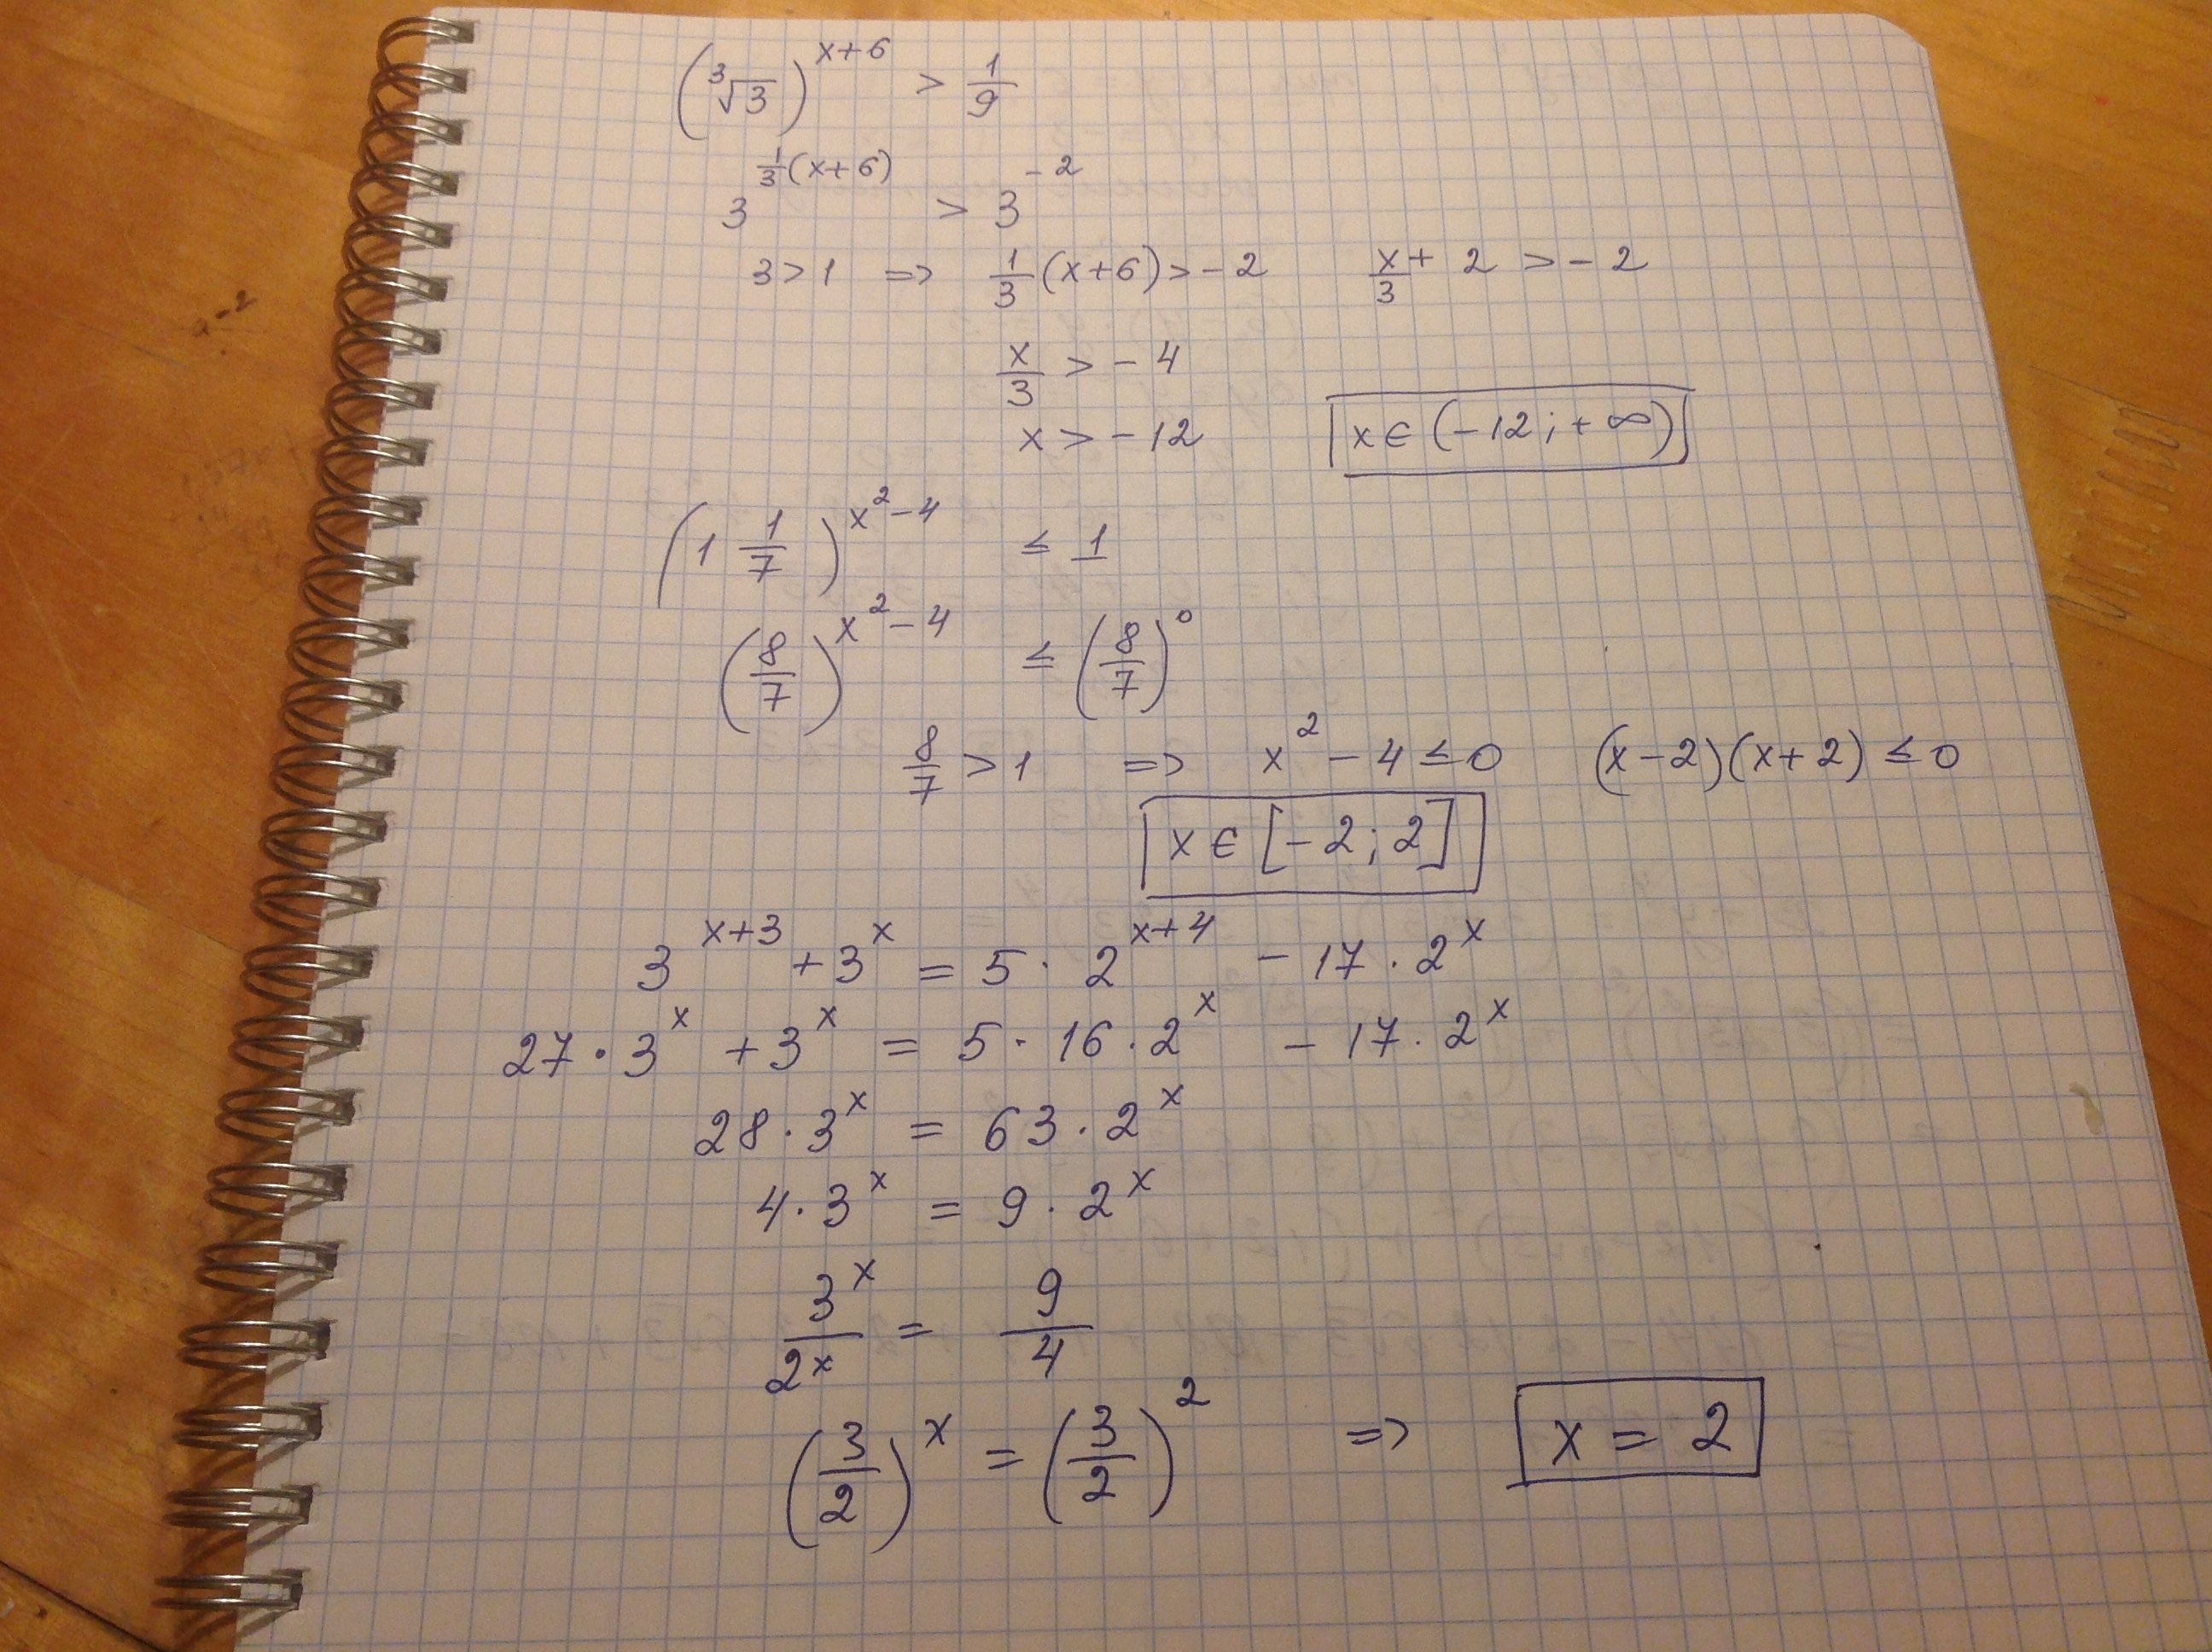 (∛3)^(x+6) > 1/9
3^(1/3(x+6)) > 3^(-2)
3 > 1 => 1/3 (x+6) > -2   x/3 + 2 > -2
x/3 > -4
x > -12   x ∈ (-12; +∞)
(1 1/7)^(x²-4) ≤ 1
(8/7)^(x²-4) ≤ (8/7)^0
8/7 > 1 => x² - 4 ≤ 0   (x-2)(x+2) ≤ 0
x ∈ [-2; 2]
3^(x+3) + 3^x = 5 · 2^(x+4) - 17 · 2^x
27 · 3^x + 3^x = 5 · 16 · 2^x - 17 · 2^x
28 · 3^x = 63 · 2^x
4 · 3^x = 9 · 2^x
3^x/2^x = 9/4
(3/2)^x = (3/2)^2 => x = 2